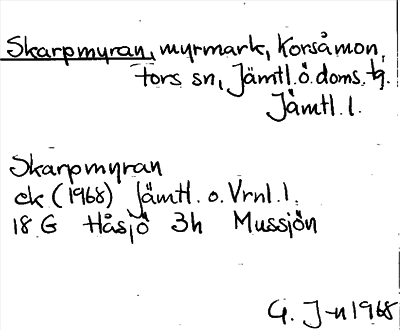 Skarpmyran, myrmark, Korsåmon,
fors sn, Jämtl. ö. doms. tg.
Jämtl. l.
Skarpmyran
ek (1968) Jämtl. o. Vrnl. l.
18 G Håsjö 3h Mussjön
G. J-n 1968